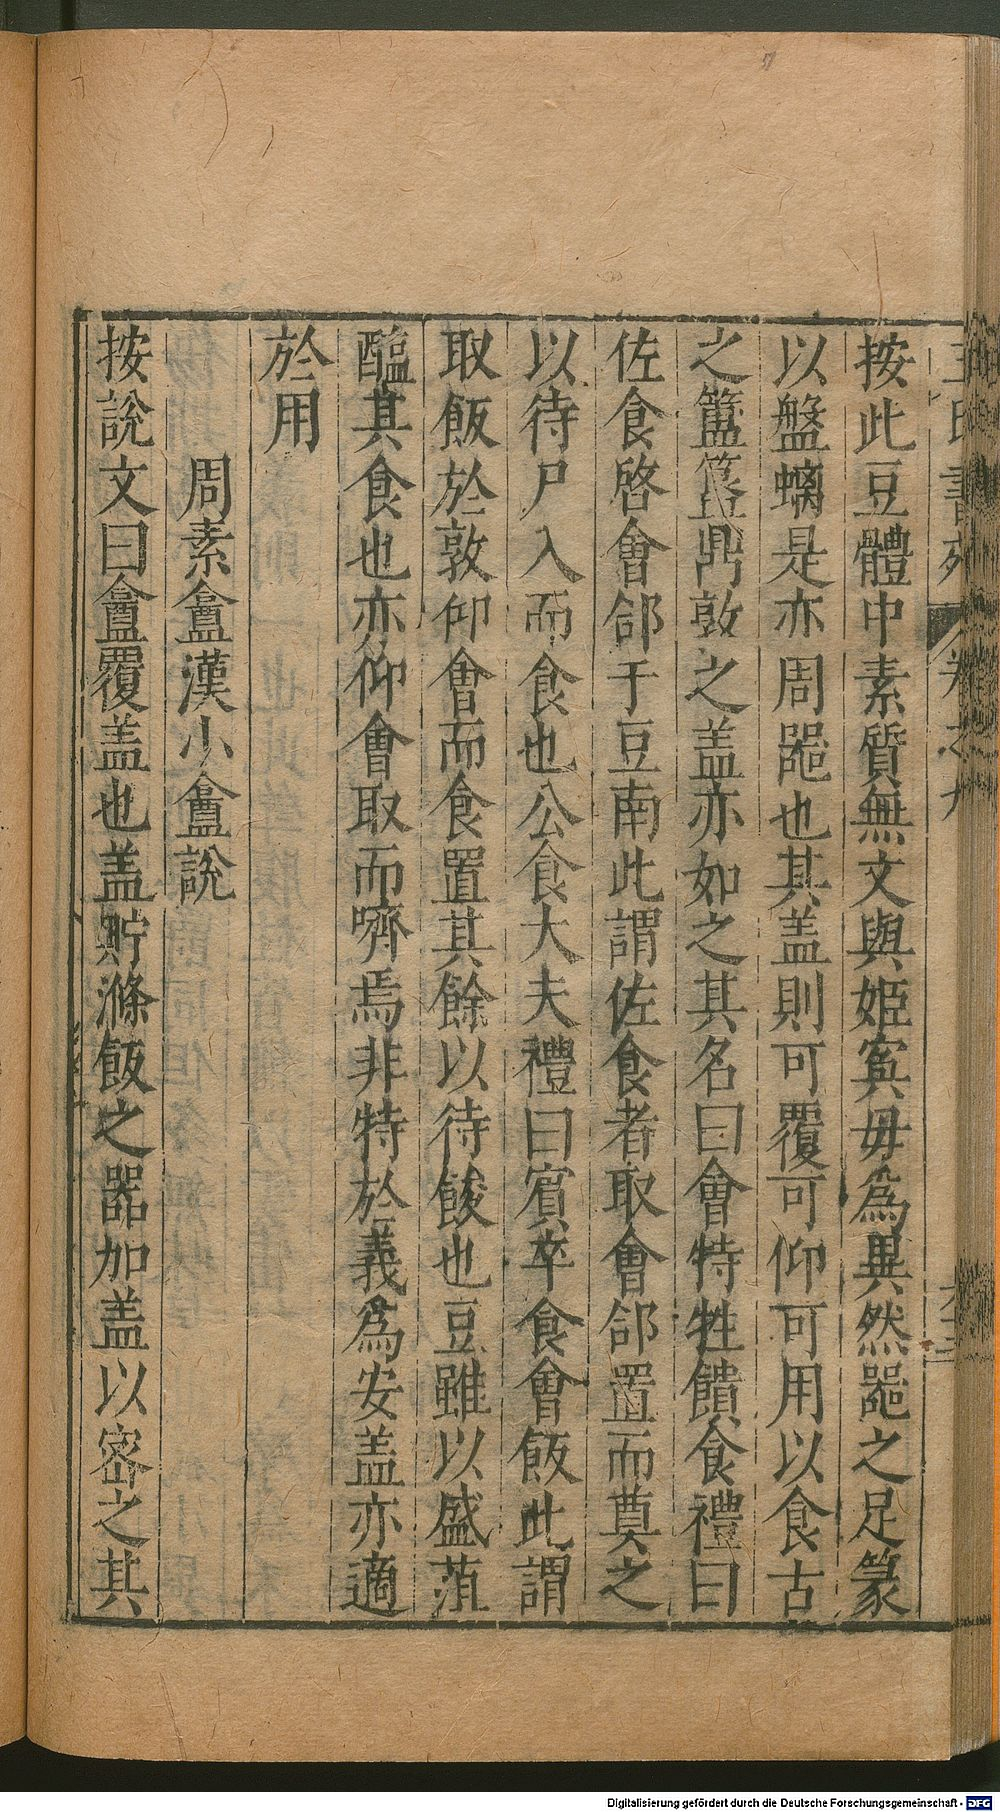 按此豆體中素質無文與姬寏毋爲異然噐之足篆
以盤螭是亦周噐也其盖則可覆可仰可用以食古
之簠簋鼎敦之盖亦如之其名曰會特牲饋食禮曰
佐食啓會郤于豆南此謂佐食者取會郤置而奠之
以待尸入而食也公食大夫禮曰賓卒食會飯此謂
取飯於敦仰會而食置其餘以待餕也豆雖以盛菹
醢其食也亦仰會取而嚌焉非特於義爲安盖亦適
於用
周素盫漢小盫說
按說文曰盫覆盖也盖貯滫飯之器加盖以密之其
Digitalisierung gefördert durch die Deutsche Forschungsgemeinschaft - DFG